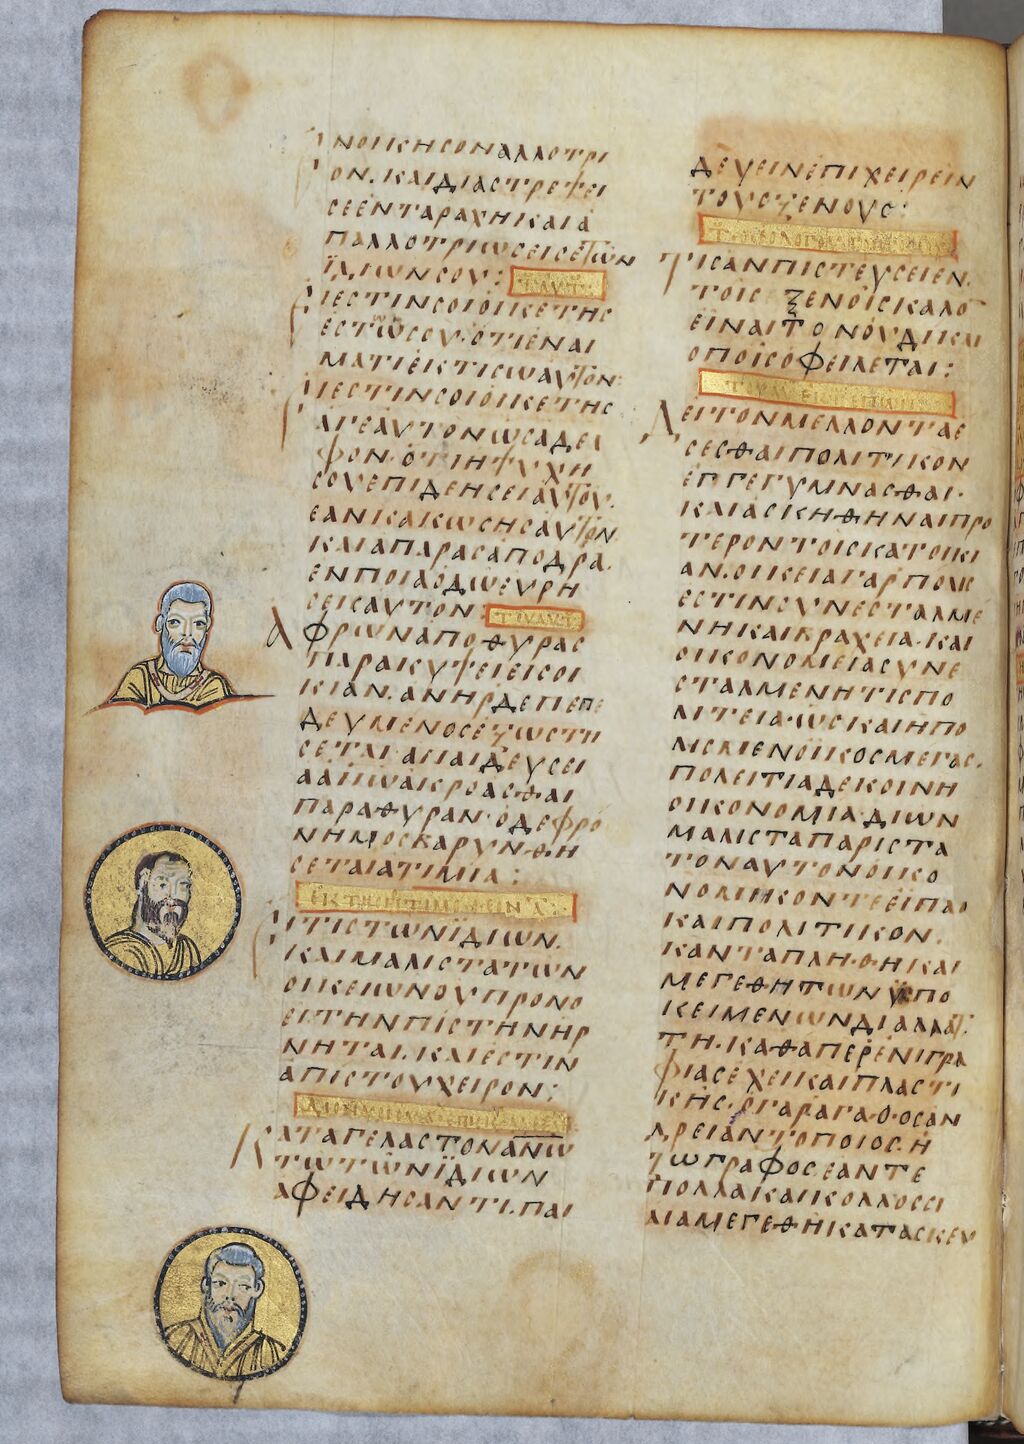 ΝΟΙΚΗCΟΝΑΛΛΟΤΡΙ
ΟΝ. ΚΑΙΔΙΑCΤΡΕΨΕΙ
CΕΕΝΤΑΡΑΧΗΙΚΑΙΑ
ΠΑΛΛΟΤΡΙΩCΕΙCΕΤῶΝ
ΪΔΙΩΝCΟΥ: ΤΟΥΑΥΤ
ΙΕCΤΙΝCΟΙΟΙΚΕΤΗC
ΕCΤΩCΟΥ·ΟΤΙΕΝΑΙ
ΜΑΤΙΕΚΤΙCΩΑΥΤΟΝ:
ΙΕCΤΙΝCΟΙΟΙΚΕΤΗC
ΑΓΕΑΥΤΟΝΩCΑΔΕΛ
ΦΟΝ·ΟΤΙΗΨΥΧΗ
CΟΥΕΠΙΔΕΗCΕΙΑΥΤΟΥ.
ΕΑΝΚΑΚΩCΗCΑΥΤΟΝ
ΚΑΙΑΠΑΡΑCΑΠΟΔΡΑ.
ΕΝΠΟΙΑΟΔΩΕΥΡΗ
CΕΙCΑΥΤΟΝ: ΤΟΥΑΥΤ
ΑΦΡΩΝΑΠΟΘΥΡΑC
ΠΑΡΑΚΥΨΕΙΕΙCΟΙ
ΚΙΑΝ. ΑΝΗΡΔΕΠΕΠΕ
ΔΕΥΜΕΝΟCΕΞΩCΤΗ
CΕΤΑΙ·ΑΠΑΙΔΕΥCΕΙ
ΑΑΝΩΑΚΡΟΑCΘΑΙ
ΠΑΡΑΘΥΡΑΝ·ΟΔΕΦΡΟ
ΝΗΜΟCΒΑΡΥΝΘΗ
CΕΤΑΙΑΤΙΜΙΑ:
ΕΚΤΗCΠΡΤΙΜΟΘΕΟΝΑ:
ΕΙΤΙCΤΩΝΪΔΙΩΝ.
ΚΑΙΜΑΛΙCΤΑΤΩΝ
ΟΙΚΕΙΩΝΟΥΠΡΟΝΟ
ΕΙΤΗΝΠΙCΤΗΝΗΡ
ΝΗΤΑΙ. ΚΑΙΕCΤΙΝ
ΑΠΙCΤΟΥΧΕΙΡΟΝ:
ΚΑΤΑΓΕΛΑCΤΟΝΑΝΩ
ΤΩΤΩΝΪΔΙΩΝ
ΑΦΕΙΔΗCΑΝΤΙ. ΠΑΙ
ΔΕΥΕΙΝΕΠΙΧΕΙΡΕΙΝ
ΤΟΥCΞΕΝΟΥC:
ΤΙCΑΝΠΙCΤΕΥCΕΙΕΝ.
ΤΟΙC ΞΕΝΟΙCΚΑΛΟ
ΕΙΝΑΙΤΟΝΟΥΔΙΚΑΙ
ΟΠΟΙCΟΦΕΙΛΕΤΑΙ:
ΔΕΙΤΟΝΜΕΛΛΟΝΤΑΕ
CΕCΘΑΙΠΟΛΙΤΙΚΟΝ
ΕΓΓΕΓΥΜΝΑCΘΑΙ·
ΚΑΙΑCΚΗΘΗΝΑΙΠΡΟ
ΤΕΡΟΝΤΟΙCΚΑΤΟΙΚΙ
ΑΝ. ΟΙΚΕΙΑΓΑΡΠΟΛΙC
ΕCΤΙΝCΥΝΕCΤΑΛΜΕ
ΝΗΚΑΙΒΡΑΧΕΙΑ·ΚΑΙ
ΟΙΚΟΝΟΜΕΙΑCΥΝΕ
CΤΑΛΜΕΝΗΤΙCΠΟ
ΛΙΤΕΙΑ·ΩCΚΑΙΗΠΟ
ΛΙCΜΕΝΟΙΚΟCΜΕΓΑC.
ΠΟΛΕΙΤΙΑΔΕΚΟΙΝΗ
ΟΙΚΟΝΟΜΙΑ·ΔΙΩΝ
ΜΑΛΙCΤΑΠΑΡΙCΤΑ
ΤΟΝΑΥΤΟΝΟΙΚΟ
ΝΟΜΙΚΟΝΤΕΕΙΠΑΙ
ΚΑΙΠΟΛΙΤΙΚΟΝ.
ΚΑΝΤΑΠΛΗΘΗΚΑΙ
ΜΕΓΕΘΗΤΩΝΥΠΟ
ΚΕΙΜΕΝΩΝΔΙΑΛΛΑΤ
ΤΗ·ΚΑΘΑΠΕΡΕΝΙΓΡΑ
ΦΙΑCΕΧΕΙΚΑΙΠΛΑCΤΙ
ΚΗC·ΟΓΑΡΑΓΑΘΟCΑΝ
ΔΡΕΙΑΝΤΟΠΟΙΟC·Η
ΤΩΓΡΑΦΟCΕΑΝΤΕ
ΠΟΛΛΑΚΑΙΚΟΛΛΟCCΙ
ΑΙΑΜΕΓΕΘΗΚΑΤΑCΚΕΥ